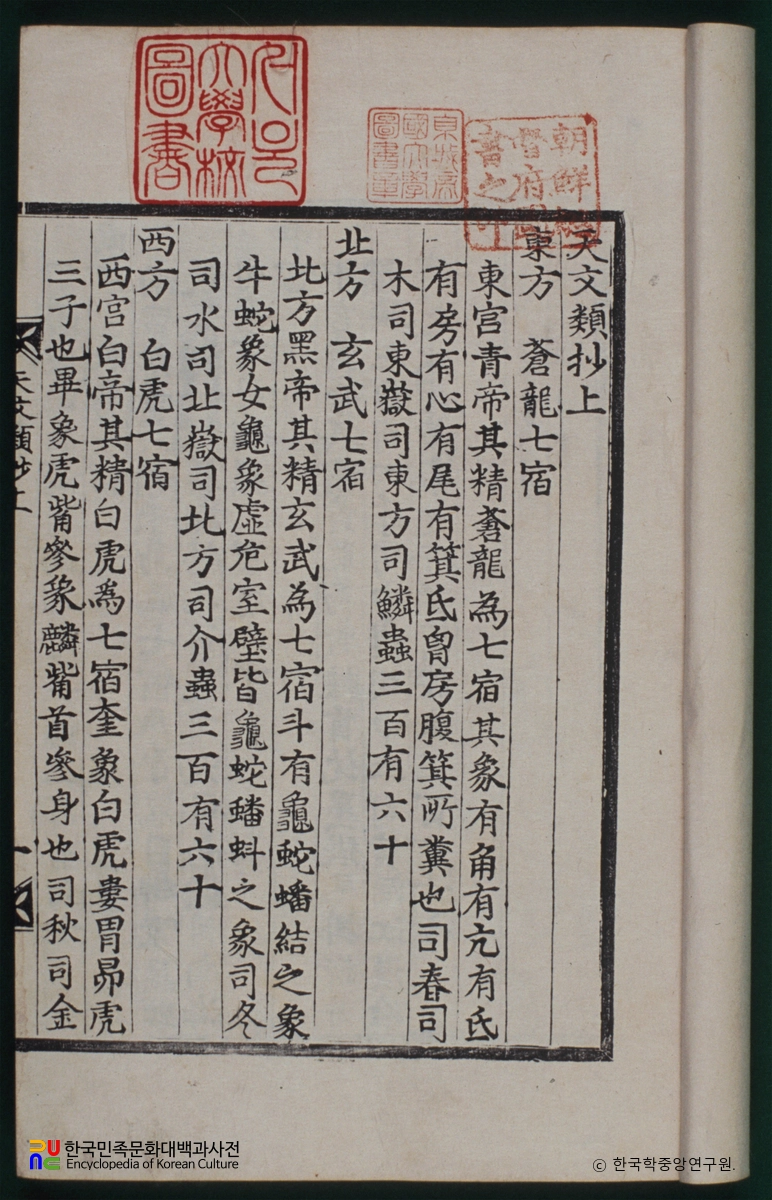 天文類抄上
東方　蒼龍七宿
東宮青帝其精蒼龍為七宿其象有角有亢有氐
有房有心有尾有箕氐胷房腹箕所糞也司春司
木司東嶽司東方司鱗蟲三百有六十
北方　玄武七宿
北方黑帝其精玄武為七宿斗有龜蛇蟠結之象
牛蛇象女龜象虛危室壁皆龜蛇蟠蚪之象司冬
司水司北嶽司北方司介蟲三百有六十
西方　白虎七宿
西宮白帝其精白虎爲七宿奎象白虎婁胃昴虎
三子也畢象虎觜參象麟觜首參身也司秋司金
天文類抄上
一
大學校
圖書
京城帝
國大學
圖書章
朝鮮總
督府圖
書之印
한국민족문화대백과사전
Encyclopedia of Korean Culture
© 한국학중앙연구원.